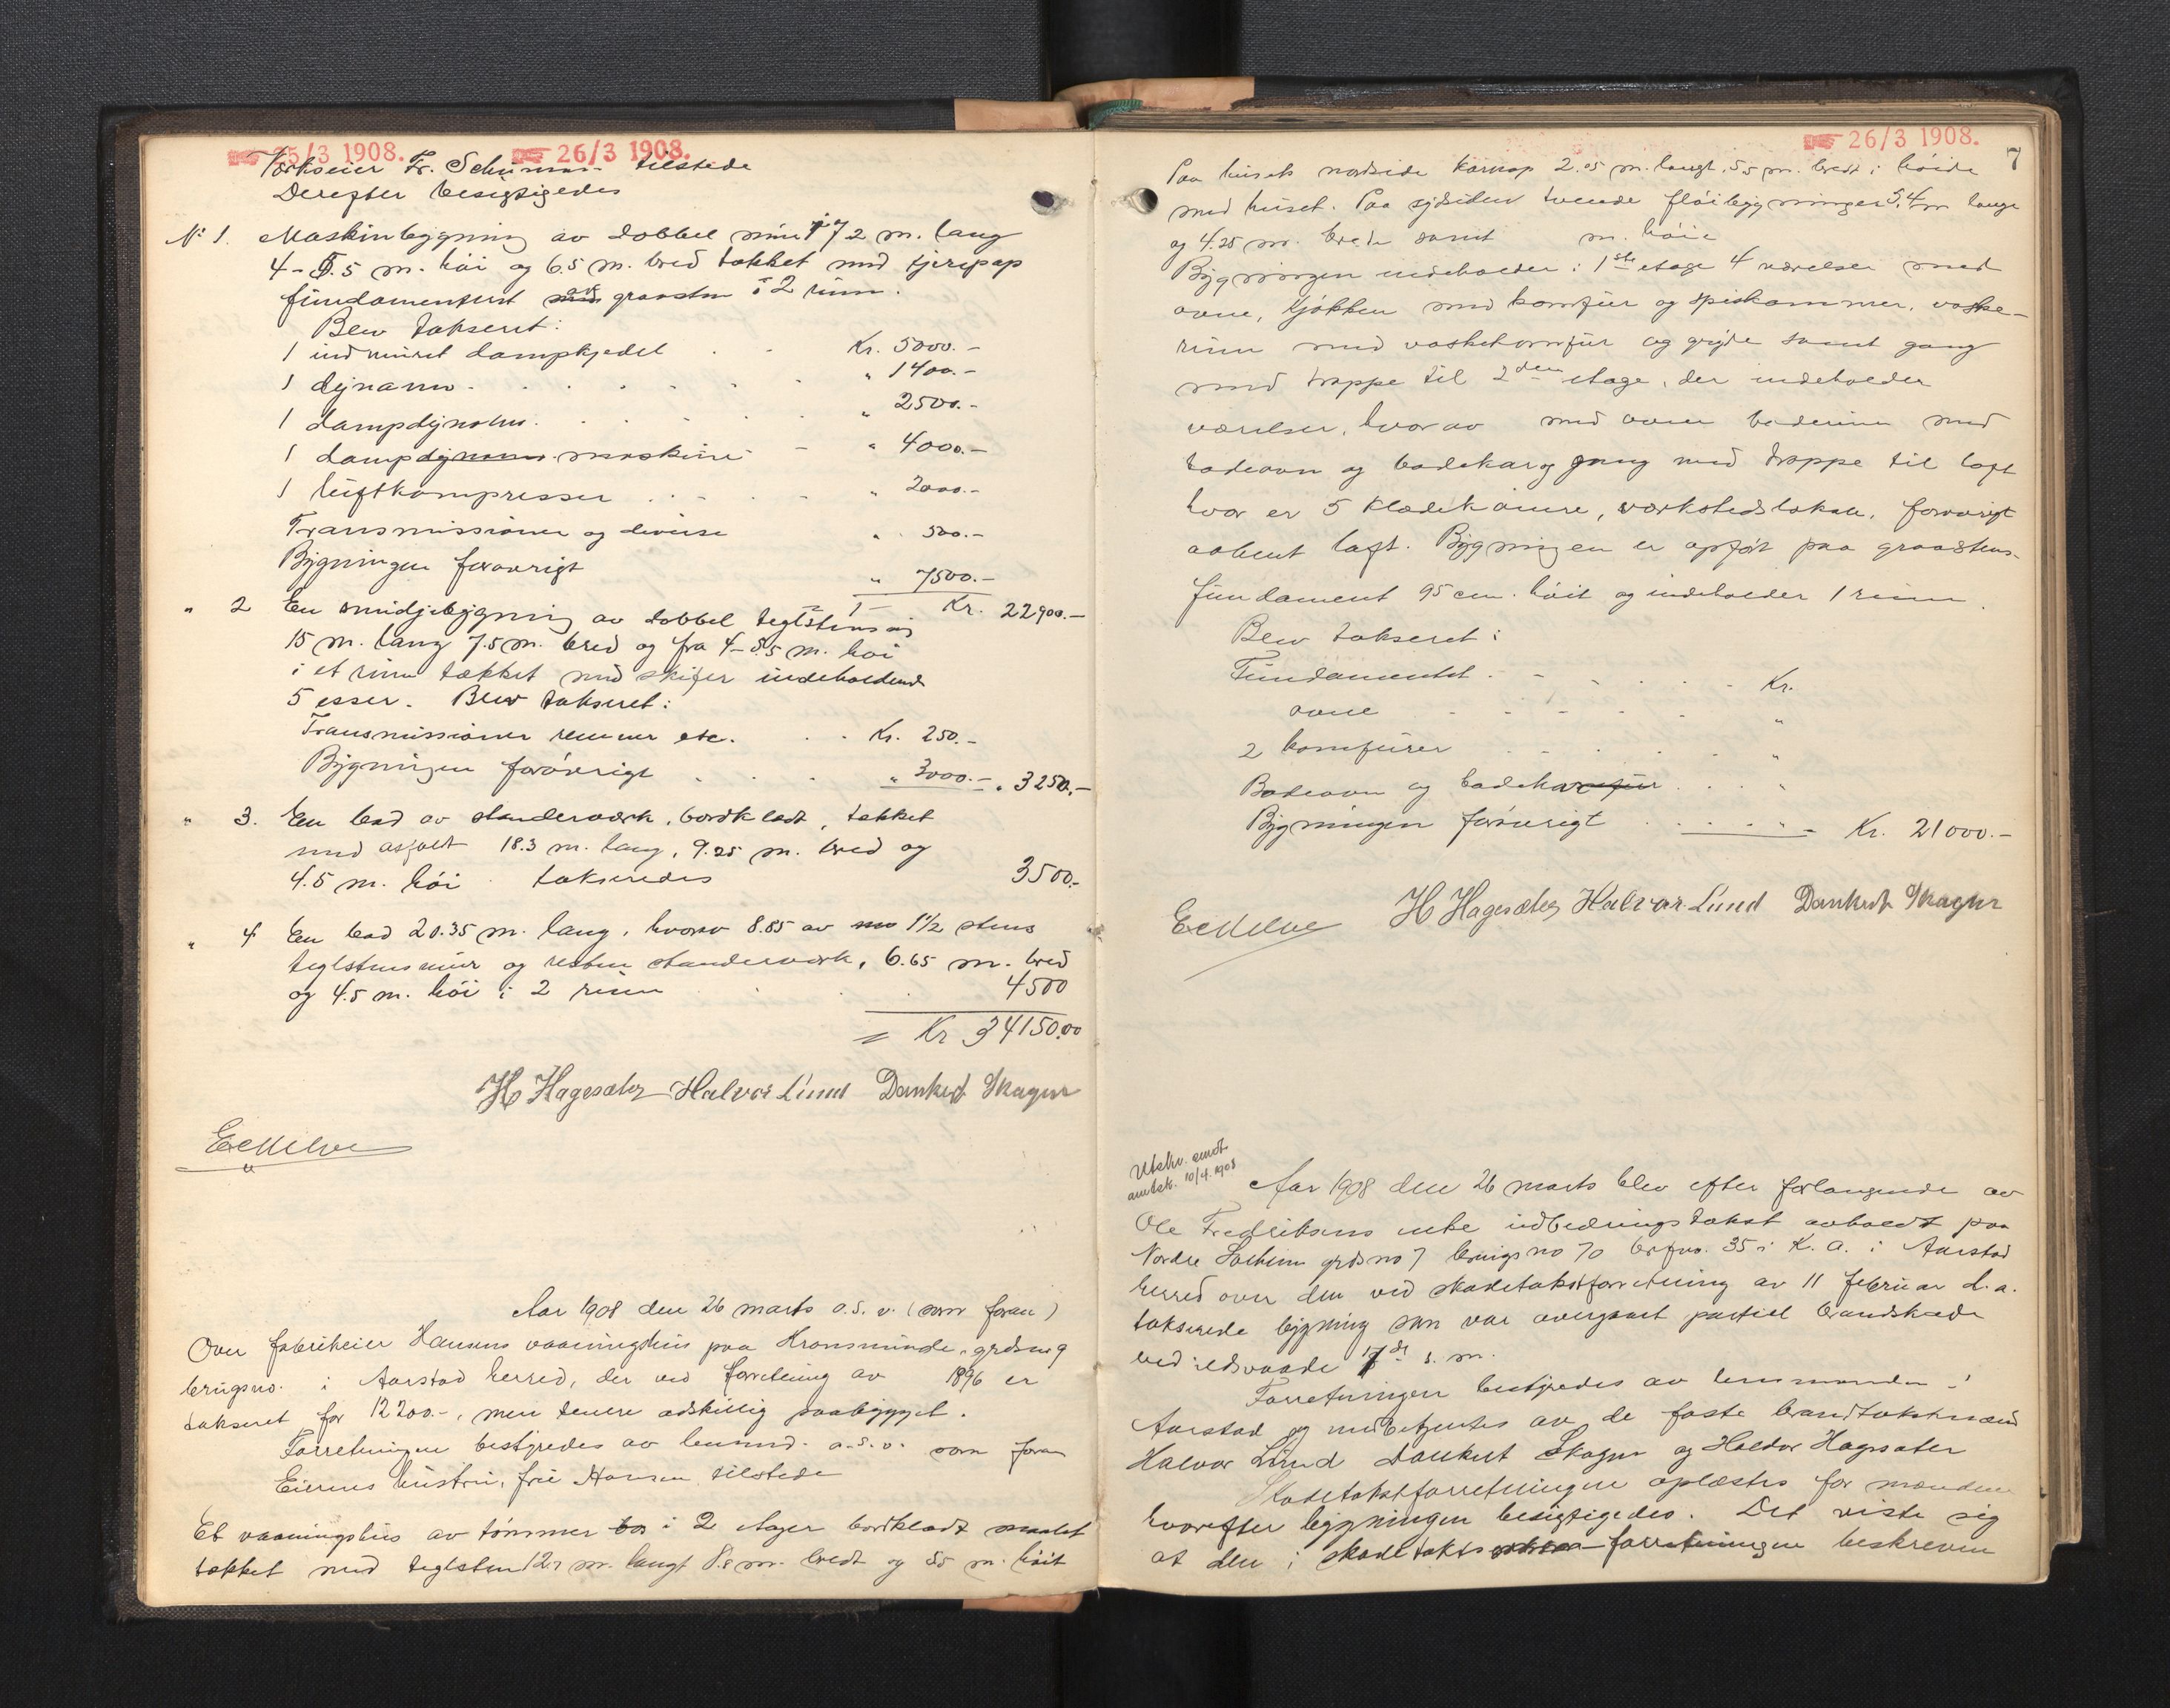 25/3 1908. 26/3 1908.
Værkseier Fr. tilstede
Derefter besigtigedes
No 1. Maskinbygning av dobbel mur 17.2 m. lang
4-5.5 m. høi og 6.5 m. bred tækket med tjærepap
fundamentert av graasten i 2 rum.
Blev takseret:
1 indmuret dampkjedel . . Kr. 5000.-
1 dynamo . . . . . . " 1400.-
1 dampdynamo . . . . . " 2500.-
1 dampdynamo maskine - - " 4000.-
1 luftkompresser . . . . " 2000.-
Transmissioner og diverse " 500.-
Bygningen forøvrigt " 7500.-
Kr. 22900.-
" 2 En smidjebygning av dobbel teglstensmur
15 m. lang 7.5 m. bred og fra 4-5.5 m. høi
i et rum tækket med skifer indeholdende
5 esser. Blev takseret:
Transmissioner remmer etc. . . Kr. 250.-
Bygningen forøvrigt . . . " 3000.- " 3250.-
" 3. En lad av standerværk, bordklædt, tækket
med asfalt 18.3 m. lang, 9.25 m. bred og
4.5 m. høi takseredes 3500.-
" 4 En lad 20.35 m. lang, hvorav 8.85 av 1½ stens
teglstensmur og resten standerværk, 6.65 m. bred
og 4.5 m. høi i 2 rum . . 4500
= Kr 34150.00
H Hagesæter Halvor Lund Dankert Skagen
Aar 1908 den 26 marts o.s.v. (som foran)
Over fabrikeier Hansens vaaningshus paa Kronsminde, grdsno 9
brugsno. i Aarstad herred, der ved forretning av 1896 er
takseret for 12200.-, men senere adskillig paabygget.
Forretningen bestyredes av lensmd. o.s.v. som foran
Eierens hustru, fru Hansen tilstede
Et vaaningshus av tømmer i 2 etager bordklædt malet
tækket med teglsten 12.7 m. langt 8.8 m. bredt og 8.5 m. høit
26/3 1908. 7
Paa husets nordside karnap 2.05 m. langt, 5.5 m. bredt i høide
med huset. Paa sydsiden tvende fløibygninger 3.4 m lange
og 4.25 m. brede samt m. høie
Bygningen indeholder i 1ste etage 4 værelser med
ovne, kjøkken med komfur og spiskammer, vaske-
rum med vaskekomfur og gryte samt gang
med trappe til 2den etage, der indeholder
værelser, hvorav med ovne baderum med
badeovn og badekar og gang med trappe til loft
hvor er 5 klædekamre, værkstedslokale, forøvrigt
aabent loft. Bygningen er opført paa graastens-
fundament 95 cm. høit og indeholder 1 rum.
Blev takseret:
Fundamentet . - . . . . Kr.
ovne - - - - . "
2 komfurer . . - . . "
Badeovn og badekar . . . "
Bygningen forøvrigt . . . . Kr. 21000.-
H Hagesæter Halvor Lund Dankert Skagen
Utskr. sendt
amtsk. 10/4.1908
Aar 1908 den 26 marts blev efter forlangende av
Ole Fredriksens enke utbedringstakst avholdt paa
Nordre Solheim grdsno 7 brugsno 70 brfno. 35 i K. A. i Aarstad
herred over den ved skadetakstforretning av 11 februar d.a.
takserede bygning som var overgaaet partiel brandskade
ved ildsvaade 7de s. m.
Forretningen bestyredes av lensmanden i
Aarstad og medbetjentes av de faste brandtakstmænd
Halvor Lund Dankert Skagen og Haldor Hagesæter
Skadetakstforretningen oplæstes for mændene
hvorefter bygningen besigtigedes. Det viste sig
at den i skadetakstforretningen beskrevne